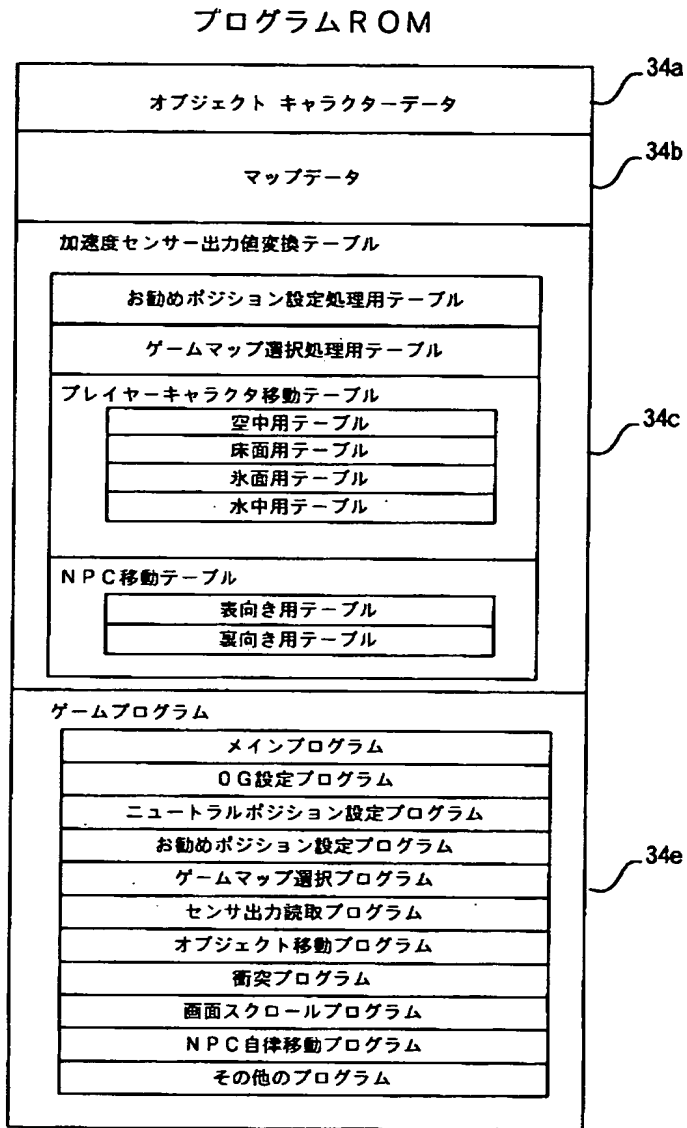 プログラムＲＯＭ
34a
オブジェクト キャラクターデータ
34b
マップデータ
加速度センサー出力値変換テーブル
お勧めポジション設定処理用テーブル
ゲームマップ選択処理用テーブル
プレイヤーキャラクタ移動テーブル
34c
空中用テーブル
床面用テーブル
氷面用テーブル
水中用テーブル
ＮＰＣ移動テーブル
表向き用テーブル
裏向き用テーブル
ゲームプログラム
メインプログラム
０Ｇ設定プログラム
ニュートラルポジション設定プログラム
お勧めポジション設定プログラム
34e
ゲームマップ選択プログラム
センサ出力読取プログラム
オブジェクト移動プログラム
衝突プログラム
画面スクロールプログラム
ＮＰＣ自律移動プログラム
その他のプログラム